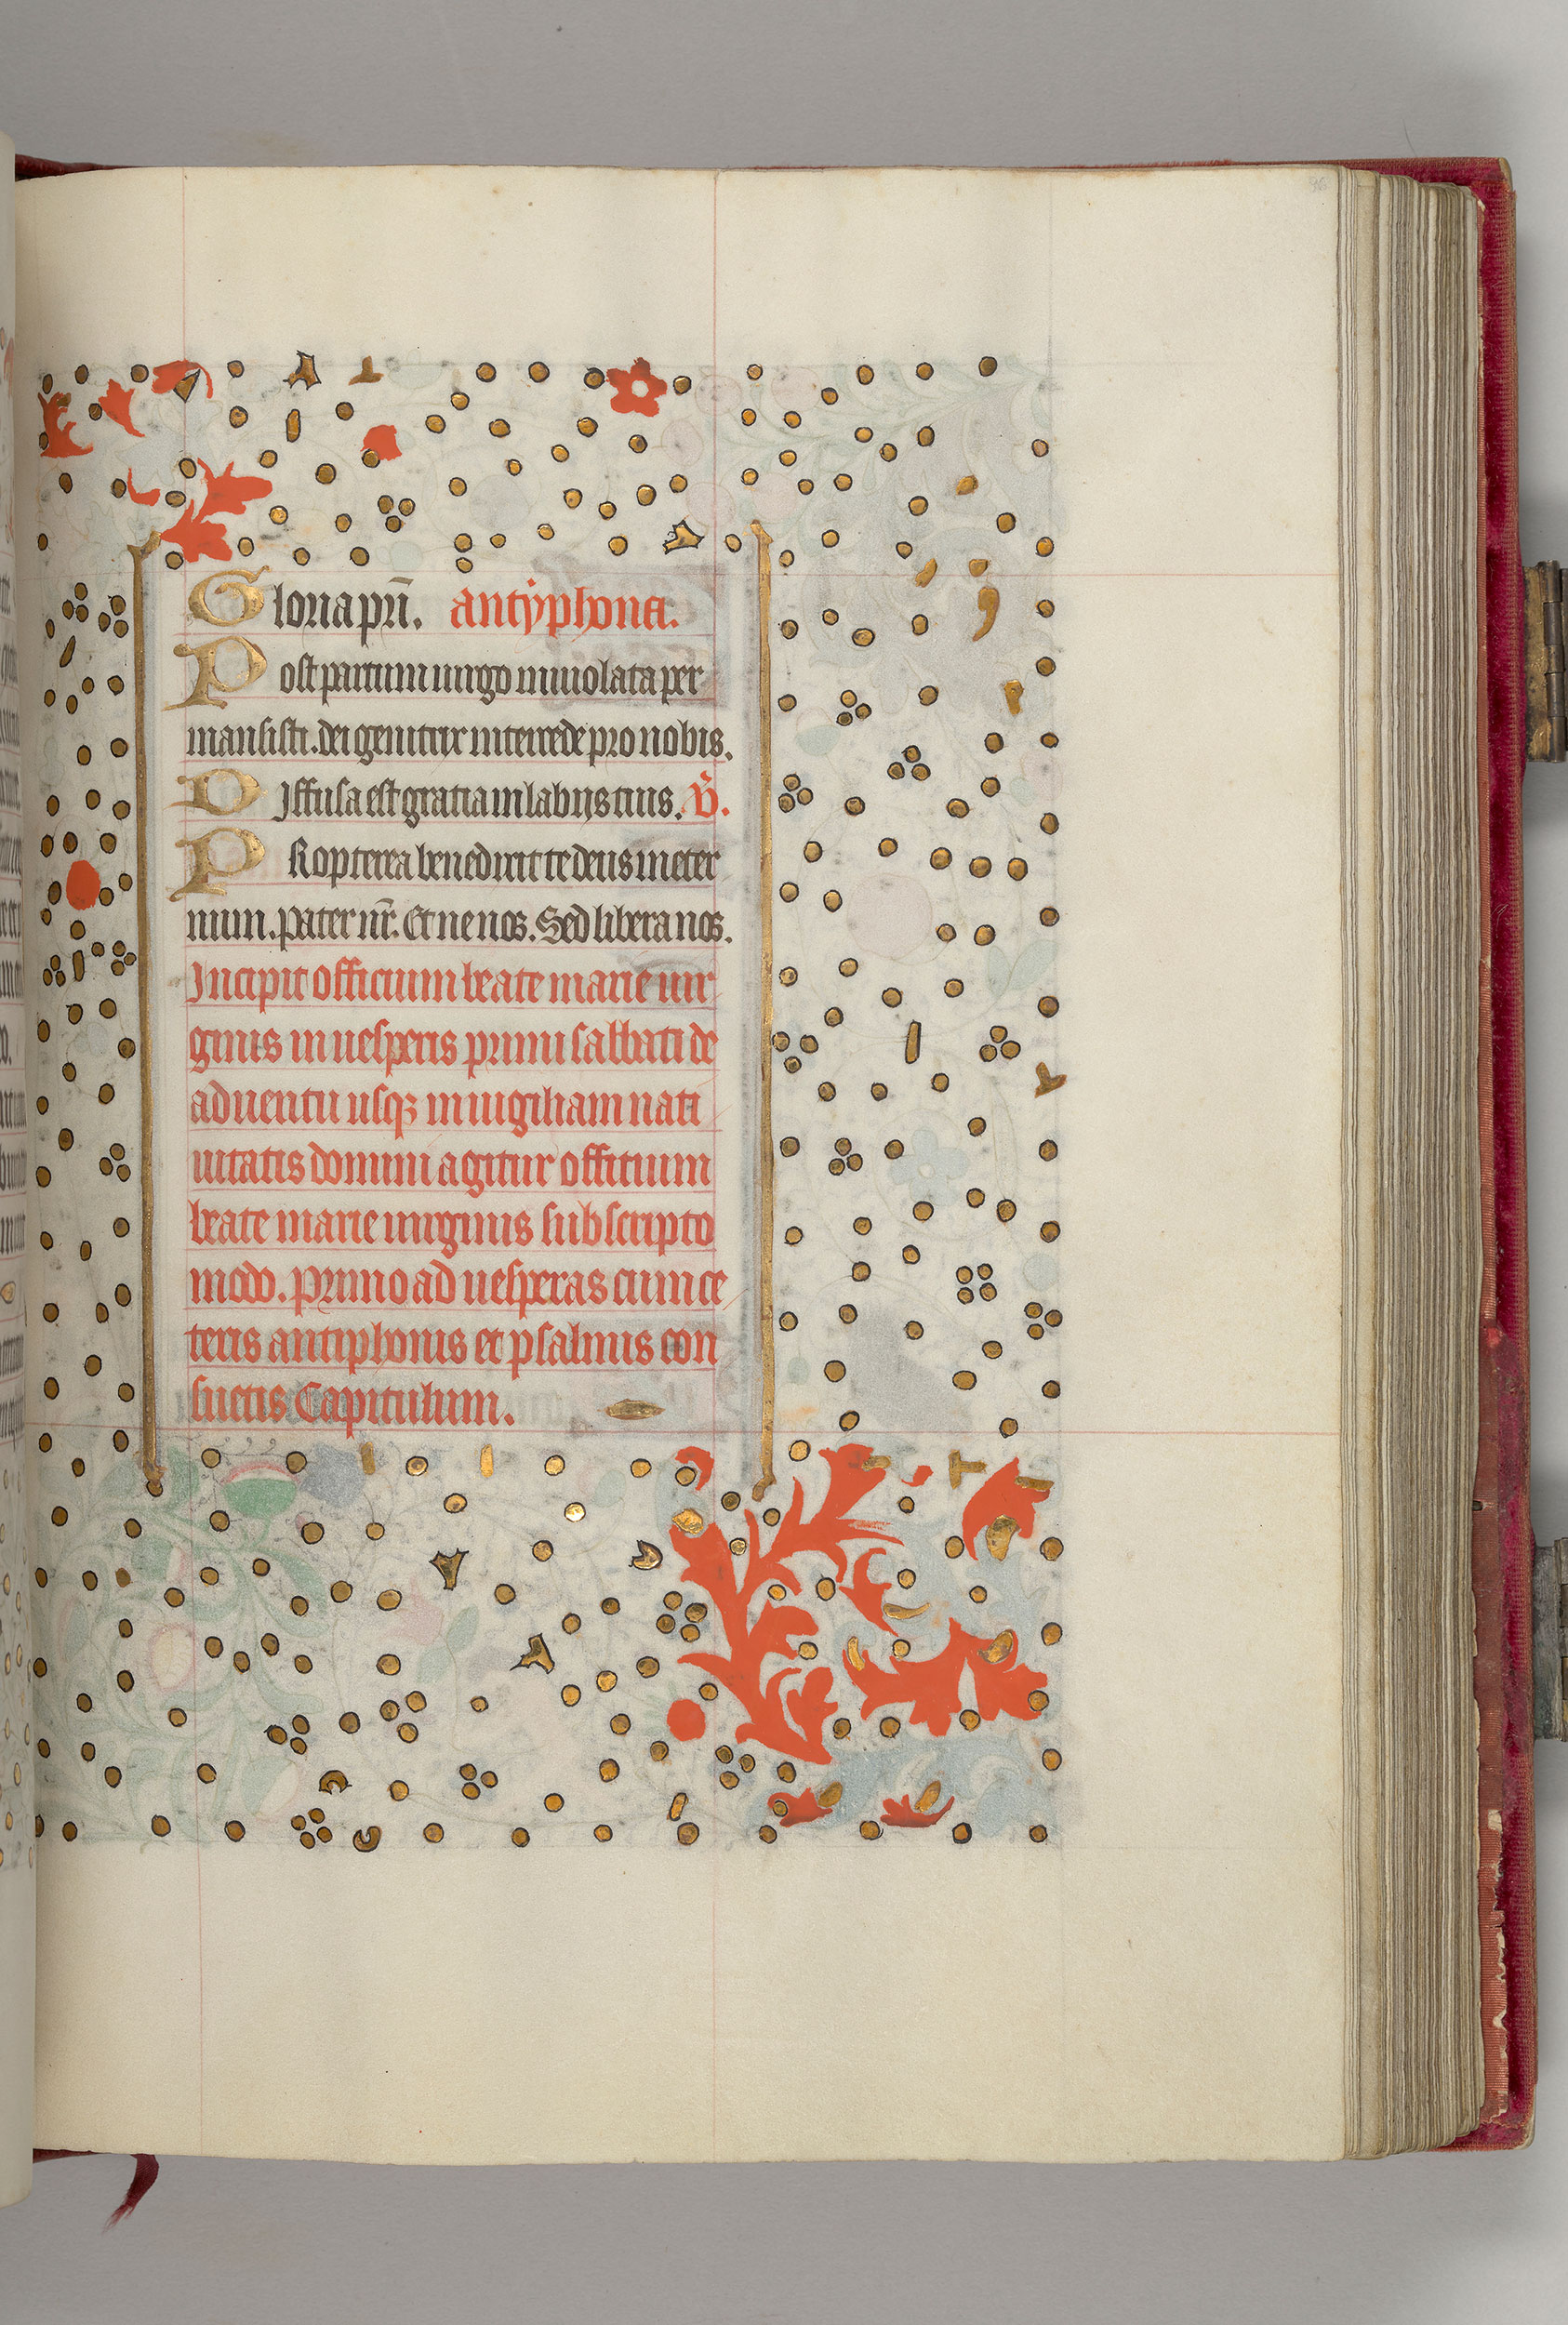 Gloria pr̄i. antyphona.
Post partum uirgo inuiolata per
mansisti. dei genitrix intercede pro nobis.
DJffusa est gratia in labijs tuis. v̄.
PRopterea benedixit te deus in eter
num. Pater nr̄. Et ne nos. Sed libera nos.
Incipit officium beate marie uir
ginis in uesperis primi sabbati de
aduentu usqꝫ in uigiliam nati
uitatis domini agitur offitium
beate marie uirginis subscripto
modo. Primo ad uesperas cum ce
teris antiphonis et psalmis con
suetis Capitulum.